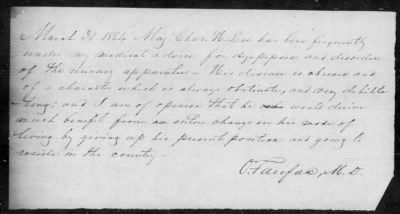 March 30 1864 Maj Chas. H. Lee has been frequently
under my medical advice for dyspepsia and disorder
of the urinary apparatus — His disease is obscure and
of a character which is always obstinate, and very debilita-
ting; and I am of opinion that he would derive
much benefit from an entire change in his mode of
living by giving up his present position and going to
reside in the country —
O. Fairfax, M. D.